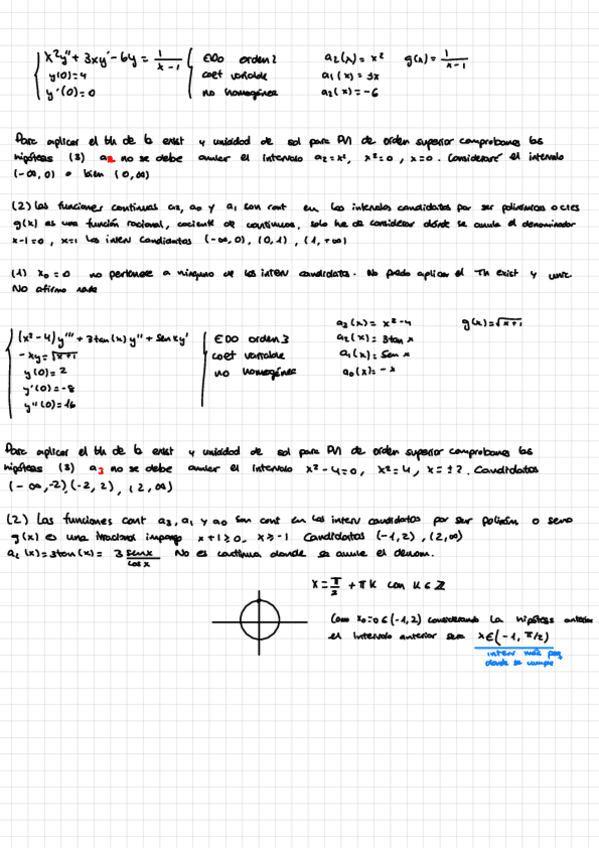 x²y'' + 3xy' - 6y = 1/(x-1) EDO orden 2 a₂(x) = x² g(x) = 1/(x-1)
y(0) = 4 coef variable a₁(x) = 3x
y'(0) = 0 no homogénea a₂(x) = -6
Para aplicar el th de la exist y unicidad de sol para PVI de orden superior comprobamos las
hipótesis (3) a₂ no se debe anular el intervalo a₂=x², x²=0, x=0. Consideraré el intervalo
(-∞,0) o bien (0,∞)
(2) Las funciones continuas a₂, a₀ y a₁ son cont en los intervalos candidatos por ser polinomicas o ctes
g(x) es una función racional, cociente de continuas, solo he de considerar dónde se anule el denominador
x-1=0, x=1 los interv candidatos (-∞,0), (0,1), (1,+∞)
(1) x₀=0 no pertenece a ninguno de los interv candidatos. No puedo aplicar el Th exist y unic.
No afirmo nada
(x²-4)y''' + 3tan(x)y'' + sen x y' EDO orden 3 a₃(x) = x²-4 g(x) = √(x+1)
-xy = √(x+1) coef variable a₂(x) = 3tan x
y(0) = 2 no homogénea a₁(x) = sen x
y'(0) = -8 a₀(x) = -x
y''(0) = 16
Para aplicar el th de la exist y unicidad de sol para PVI de orden superior comprobamos las
hipótesis (3) a₃ no se debe anular el intervalo x²-4=0, x²=4, x=±2. Candidatos
(-∞,-2), (-2,2), (2,∞)
(2) Las funciones cont a₃, a₁ y a₀ son cont en los interv candidatos por ser polinóm. o seno
g(x) es una irracional impongo x+1≥0, x≥-1 Candidatos (-1,2), (2,∞)
a₂(x) = 3tan(x) = 3 senx/cosx No es continua donde se anule el denom.
x = π/2 + πK con K ∈ Z
Como x₀=0∈(-1,2) considerando la hipótesis anterior
el intervalo anterior será x∈(-1, π/2)
interv más peq
donde se cumple